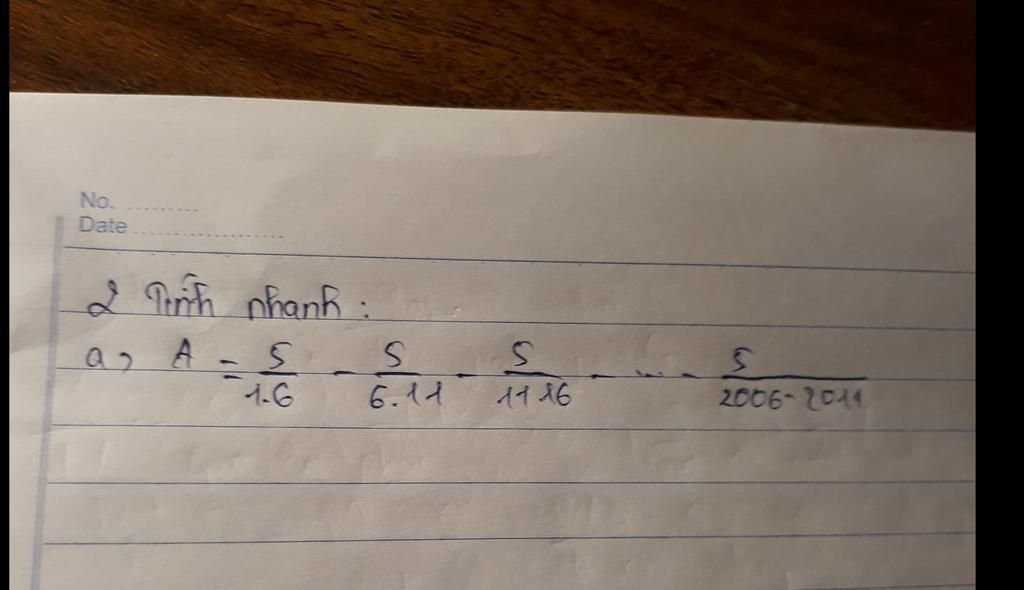 No. .........
Date ...................
2 Tính nhanh :
a, A = 5/1.6 - 5/6.11 - 5/11.16 - ... - 5/2006.2011